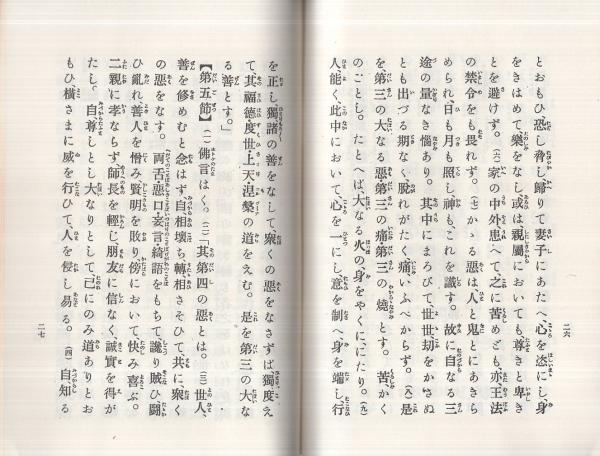 とおもひ恐し脅し歸りて妻子にあたへ、心を恣にし、身
をきはめて、樂をなし、或は親屬においても尊きと卑き
とを避けず。(六)家の中外患へて之に苦めども、亦王法
の禁令をも畏れず。(七)かゝる惡は、人と鬼とにあきら
められ、日も月も照し、神も、これを識す。故に自なる三
途の量なき惱あり。其中にまろびて、世世劫をかさぬ
とも出づる期なく、脫れがたく、痛いふべからず。(八)是
を第三の大なる惡、第三の痛、第三の燒とす。苦、かく
のごとし。たとへば、大なる火の身をやくに、にたり。(九)
人能く、此中において、心を一にし、意を制へ、身を端し、行
二六
を正し、獨諸の善をなして、衆くの惡をなさずば、獨度え
て、其福德、度世、上天、涅槃の道をえむ。是を第三の大な
る善とす。」
【第五節】(一)佛言はく。(二)「其第四の惡とは。(三)世人、
善を修めむと念はず、自相壞ち、轉相さそひて、共に、衆く
の惡をなす。兩舌、惡口、妄言、綺語をもちて、讒り賊ひ、鬪
ひ亂れ、善人を憎み、賢明を敗り、傍において快み喜ぶ。
二親に孝ならず、師長を輕じ、朋友に信なく、誠實を得が
たし。自尊しとし、大なりとして、己にのみ道ありとお
もひ、橫さまに威を行ひて、人を侵し易る。(四)自知る
二七